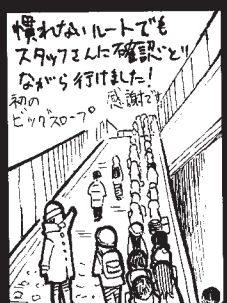 慣れないルートでも
スタッフさんに確認とり
ながら行けました!
初の
ビッグスロープ
感謝です